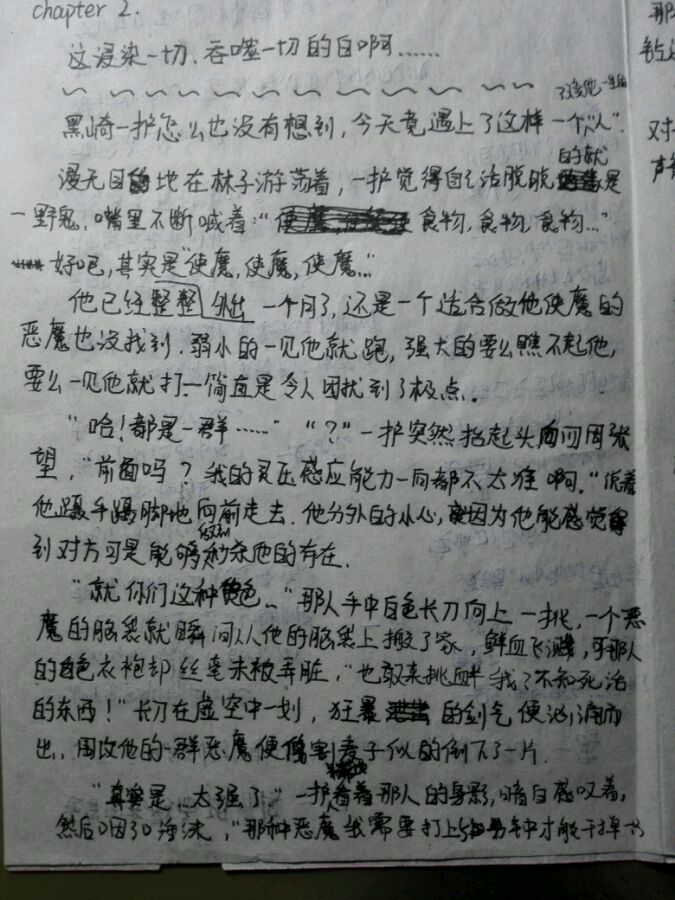 chapter 2.
这浸染一切、吞噬一切的白啊……
黑崎一护怎么也没有想到,今天竟遇上了这样一个“人”.
漫无目的地在林子游荡着,一护觉得自己活脱脱的就是
一野鬼,嘴里不断喊着:“食物,食物,食物…”
好吧,其实是“使魔,使魔,使魔…”
他已经整整外出一个月了,还是一个适合做他使魔的
恶魔也没找到.弱小的一见他就跑,强大的要么瞧不起他,
要么一见他就打一简直是令人困扰到了极点.
“哈!都是一群……” “?”一护突然抬起头向四周张
望,“前面吗?我的灵压感应能力一向都不太准啊.”说着
他蹑手蹑脚地向前走去.他分外的小心,因为他能感觉
到对方可是能够秒杀他的存在.
“就你们这种货色…”那人手中白色长刀向上一挑,一个恶
魔的脑袋就瞬间从他的脑袋上搬了家,鲜血飞溅,可那人
的白色衣袍却丝毫未被弄脏,“也敢来挑衅我?不知死活
的东西!”长刀在虚空中一划,狂暴的剑气便汹涌而
出,围攻他的一群恶魔便像割麦子似的倒下了一片.
“真是…太强了”一护看着那人的身影,暗自感叹着,
然后咽了口海沫,“那种恶魔我需要打上分钟才能干掉
那
对
声